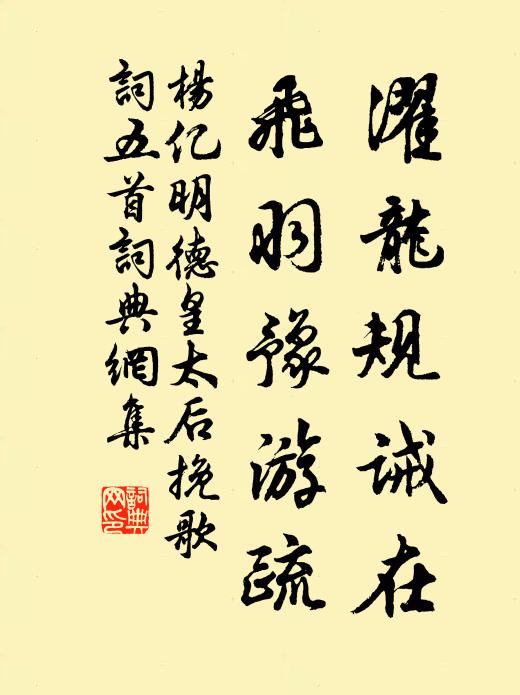 濯龍規誡在
飛羽豫游疏
楊亿明德皇太后挽歌
詞五首詞典網集
詞典網印